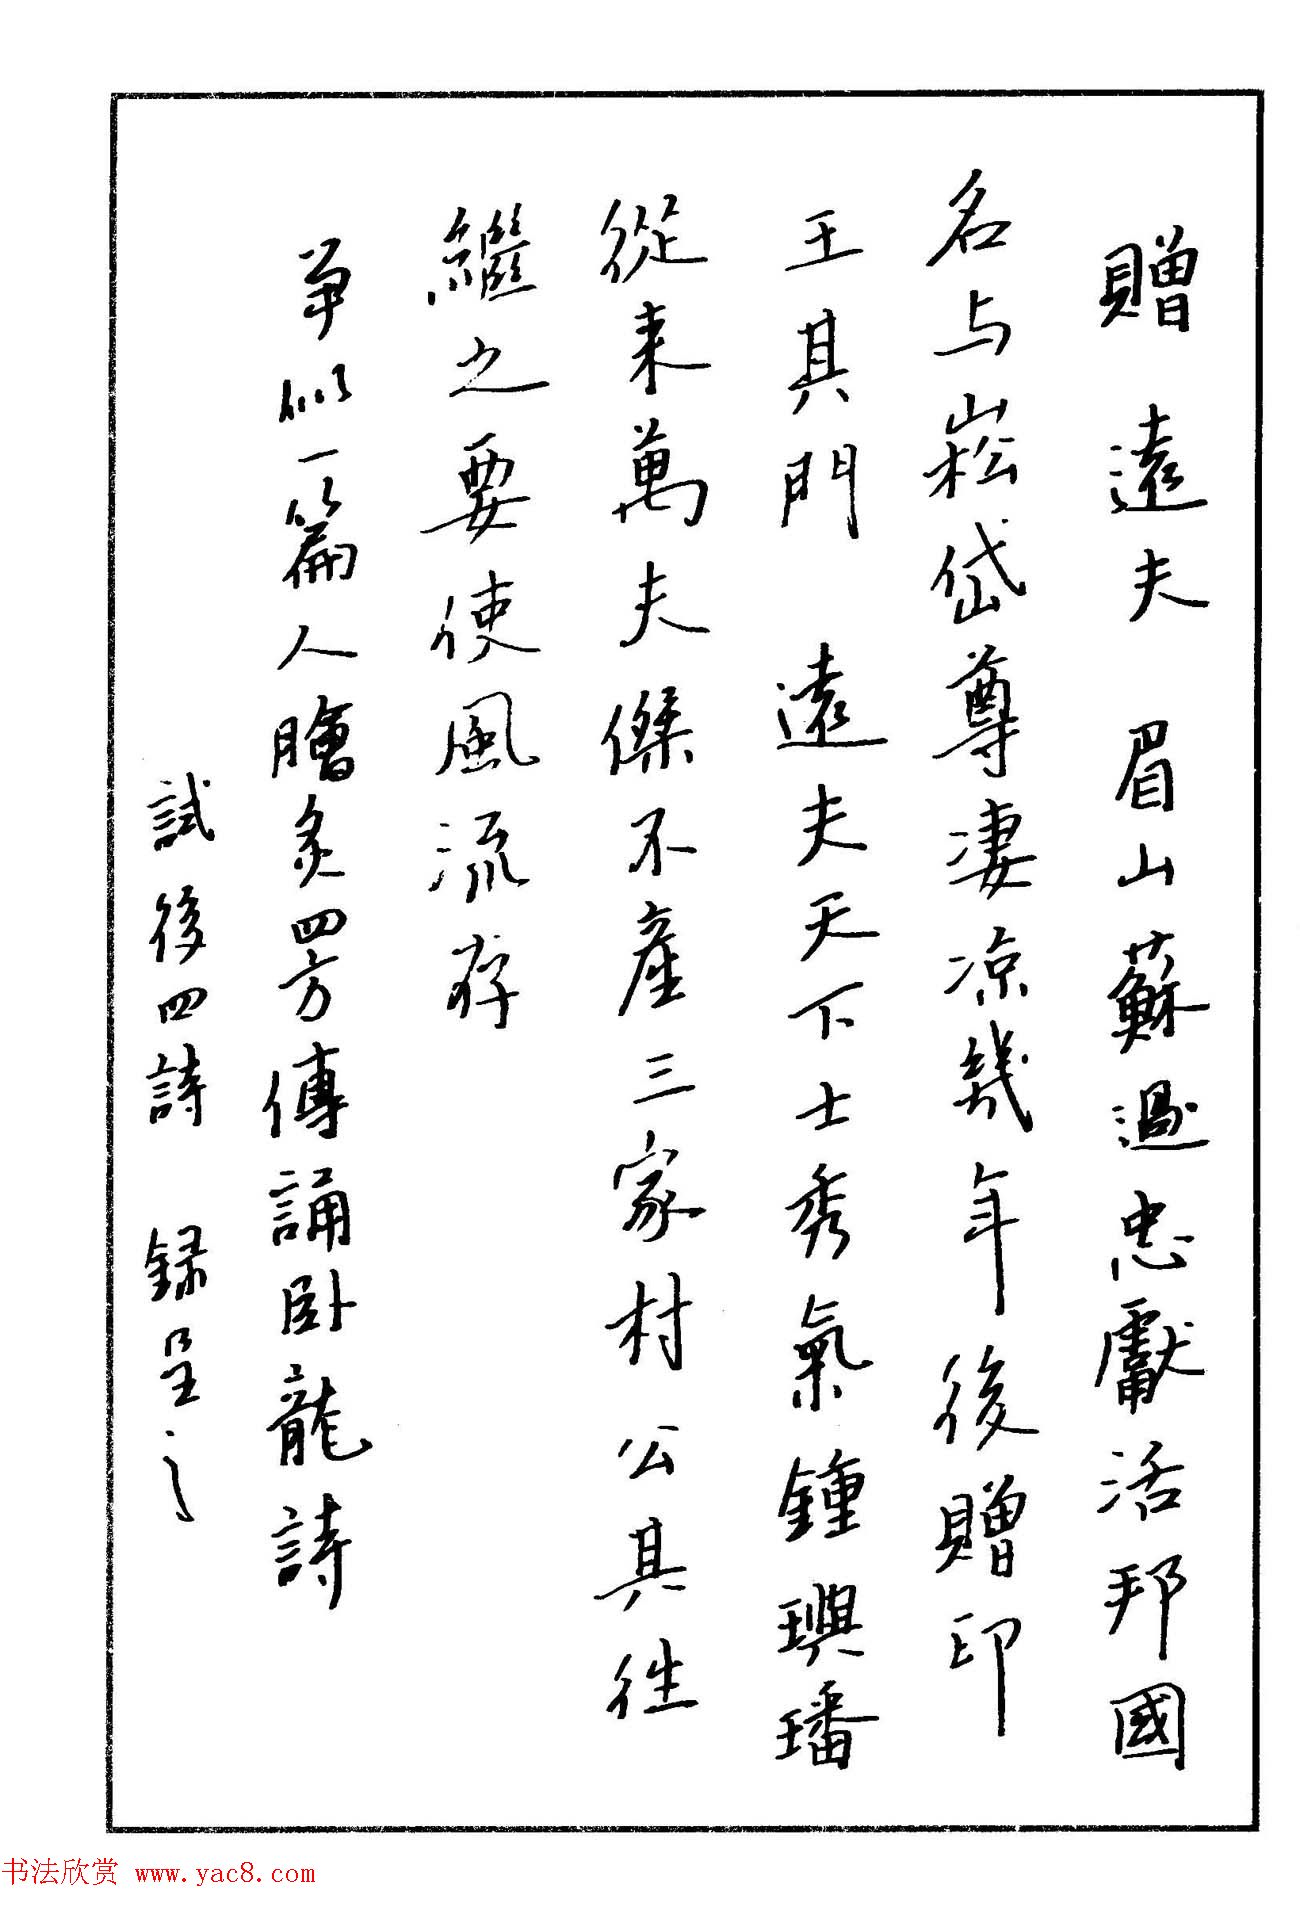 贈 遠夫 眉山蘇過忠獻活邦國
名与崧岱尊凄凉幾年後贈印
王其門 遠夫天下士秀氣鍾璵璠
從来萬夫傑不産三家村公其往
繼之要使風流存
争似一篇人膾炙四方傳誦卧龍詩
試後四詩 録呈之
书法欣赏 www.yac8.com